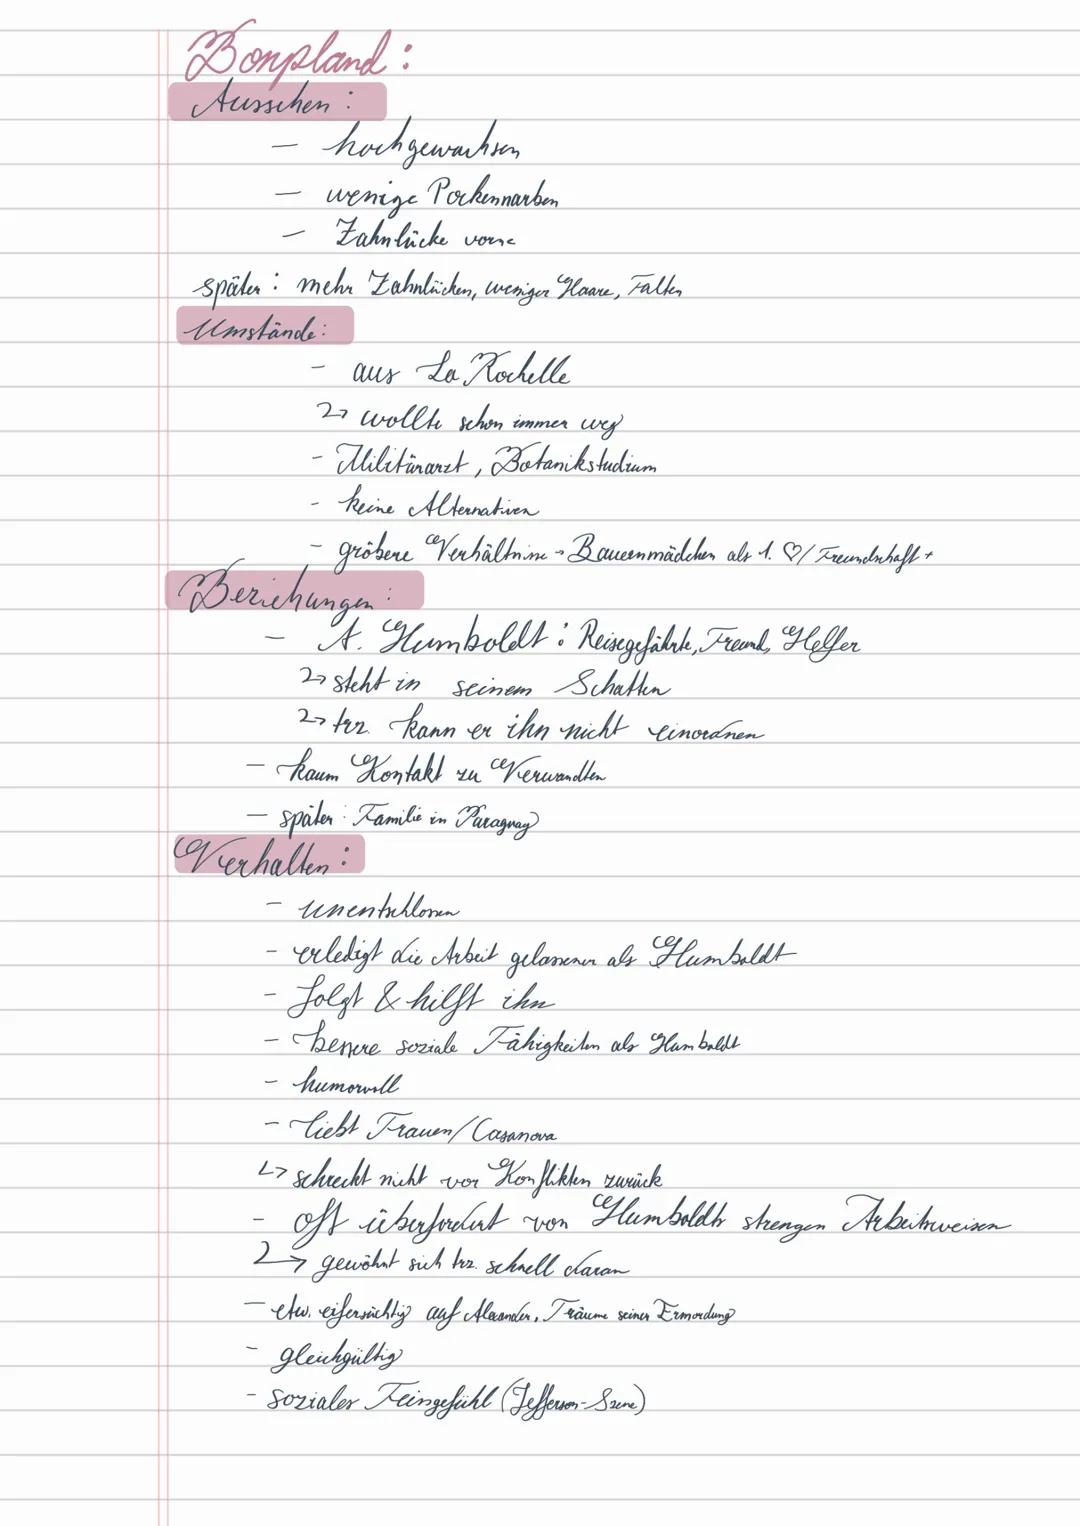 Bonpland:
Aussehen:
— hochgewachsen
— wenige Pockennarben
— Zahnlücke vorne
später: mehr Zahnlücken, weniger Haare, Falten
Umstände:
- aus La Rochelle
↳ wollte schon immer weg
- Militärarzt, Botanikstudium
- keine Alternativen
- gröbere Verhältnisse - Bauernmädchen als 1. ♡/ Freundschaft +
Beziehungen:
— A. Humboldt: Reisegefährte, Freund, Helfer
↳ steht in seinem Schatten
↳ trz. kann er ihn nicht einordnen
— kaum Kontakt zu Verwandten
— später: Familie in Paraguay
Verhalten:
- unentschlossen
- erledigt die Arbeit gelassener als Humboldt
- folgt & hilft ihn
- bessere soziale Fähigkeiten als Humboldt
- humorvoll
- liebt Frauen/Casanova
↳ schreckt nicht vor Konflikten zurück
- oft überfordert von Humboldts strengen Arbeitsweisen
↳ gewöhnt sich trz. schnell daran
- etw. eifersüchtig auf Alexander, Träume seiner Ermordung
- gleichgültig
- sozialer Feingefühl (Jefferson-Szene)